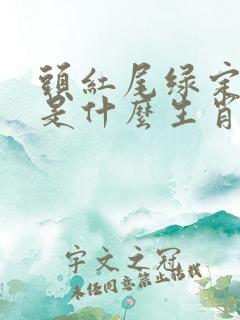 頭紅尾绿宗
是什麼生肖
宇文之冠
未经同意禁止转载